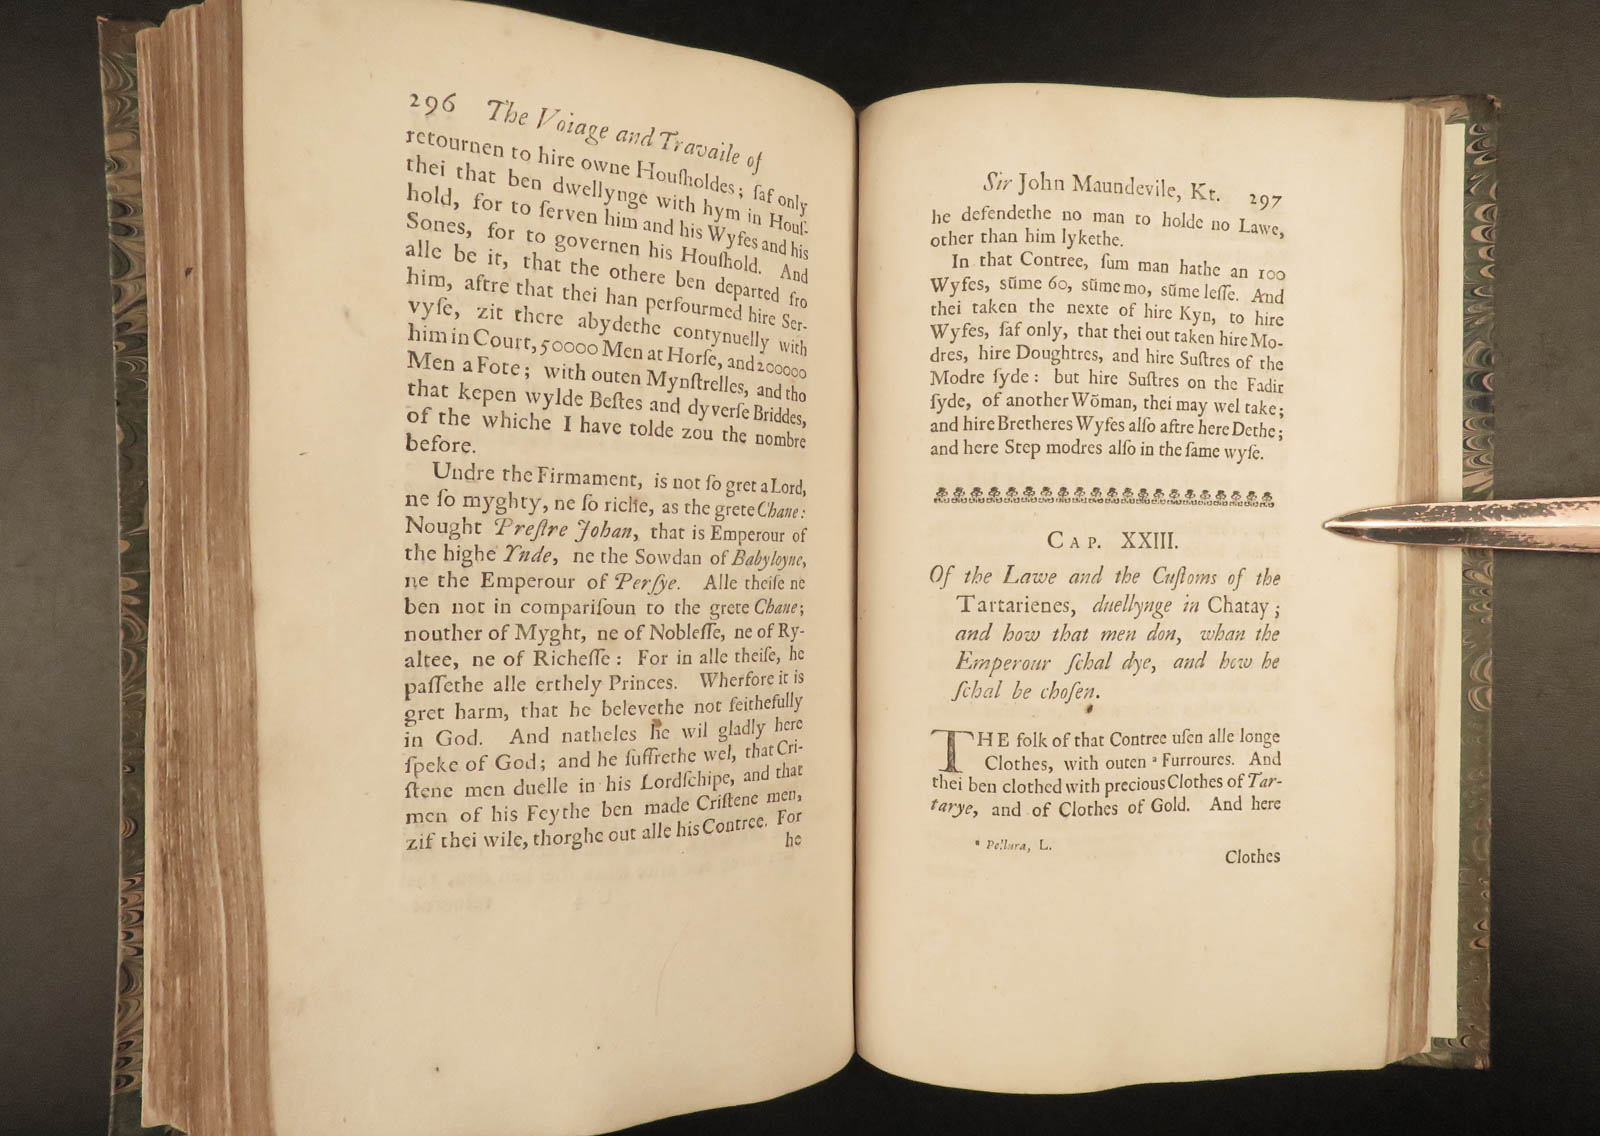 296 The Voiage and Travaile of
retournen to hire owne Houſholdes; ſaf only
thei that ben dwellynge with hym in Houſ-
hold, for to ſerven him and his Wyfes and his
Sones, for to governen his Houſhold. And
alle be it, that the othere ben departed fro
him, aftre that thei han perfourmed hire Ser-
vyſe, zit there abydethe contynuelly with
him in Court, 50000 Men at Horſe, and 200000
Men a Fote; with outen Mynſtrelles, and tho
that kepen wylde Beſtes and dyverſe Briddes,
of the whiche I have tolde zou the nombre
before.
Undre the Firmament, is not ſo gret a Lord,
ne ſo myghty, ne ſo riche, as the grete Chane:
Nought Preſtre Johan, that is Emperour of
the highe Ynde, ne the Sowdan of Babyloyne,
ne the Emperour of Perſye. Alle theiſe ne
ben not in compariſoun to the grete Chane;
nouther of Myght, ne of Nobleſſe, ne of Ry-
altee, ne of Richeſſe: For in alle theiſe, he
paſſethe alle erthely Princes. Wherfore it is
gret harm, that he belevethe not feithefully
in God. And natheles he wil gladly here
ſpeke of God; and he ſuffrethe wel, that Cri-
ſtene men duelle in his Lordſchipe, and that
men of his Feythe ben made Criſtene men,
zif thei wile, thorghe out alle his Contree. For
he
Sir John Maundevile, Kt. 297
he defendethe no man to holde no Lawe,
other than him lykethe.
In that Contree, ſum man hathe an 100
Wyfes, sūme 60, sūme mo, sūme leſſe. And
thei taken the nexte of hire Kyn, to hire
Wyfes, ſaf only, that thei out taken hire Mo-
dres, hire Doughtres, and hire Suſtres of the
Modre ſyde: but hire Suſtres on the Fadir
ſyde, of another Wōman, thei may wel take;
and hire Bretheres Wyfes alſo aftre here Dethe;
and here Step modres alſo in the ſame wyſe.
CAP. XXIII.
Of the Lawe and the Cuſtoms of the
Tartarienes, duellynge in Chatay;
and how that men don, whan the
Emperour ſchal dye, and how he
ſchal be choſen.
THE folk of that Contree uſen alle longe
Clothes, with outen ª Furroures. And
thei ben clothed with precious Clothes of Tar-
tarye, and of Clothes of Gold. And here
ª Pellura, L.
Clothes